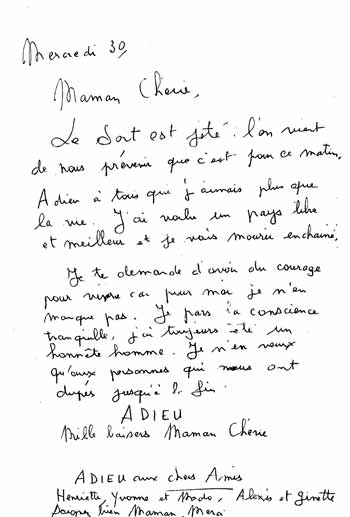 Mercredi 30/
Maman Chérie,
Le Sort est jeté. l'on vient
de nous prévenir que c'est pour ce matin.
Adieu à tous que j'aimais plus que
la vie. J'ai voulu un pays libre
et meilleur et je vais mourir enchainé.
Je te demande d'avoir du courage
pour vivre car pour moi je n'en
manque pas. Je pars la conscience
tranquille, j'ai toujours été un
honnête homme. Je n'en veux
qu'aux personnes qui nous ont
dupés jusqu'à la fin.
ADIEU
Mille baisers Maman Chérie
ADIEU aux chers Amis
Henriette, Yvonne et Mado, Alexis et Ginette
Soignez bien Maman. Merci